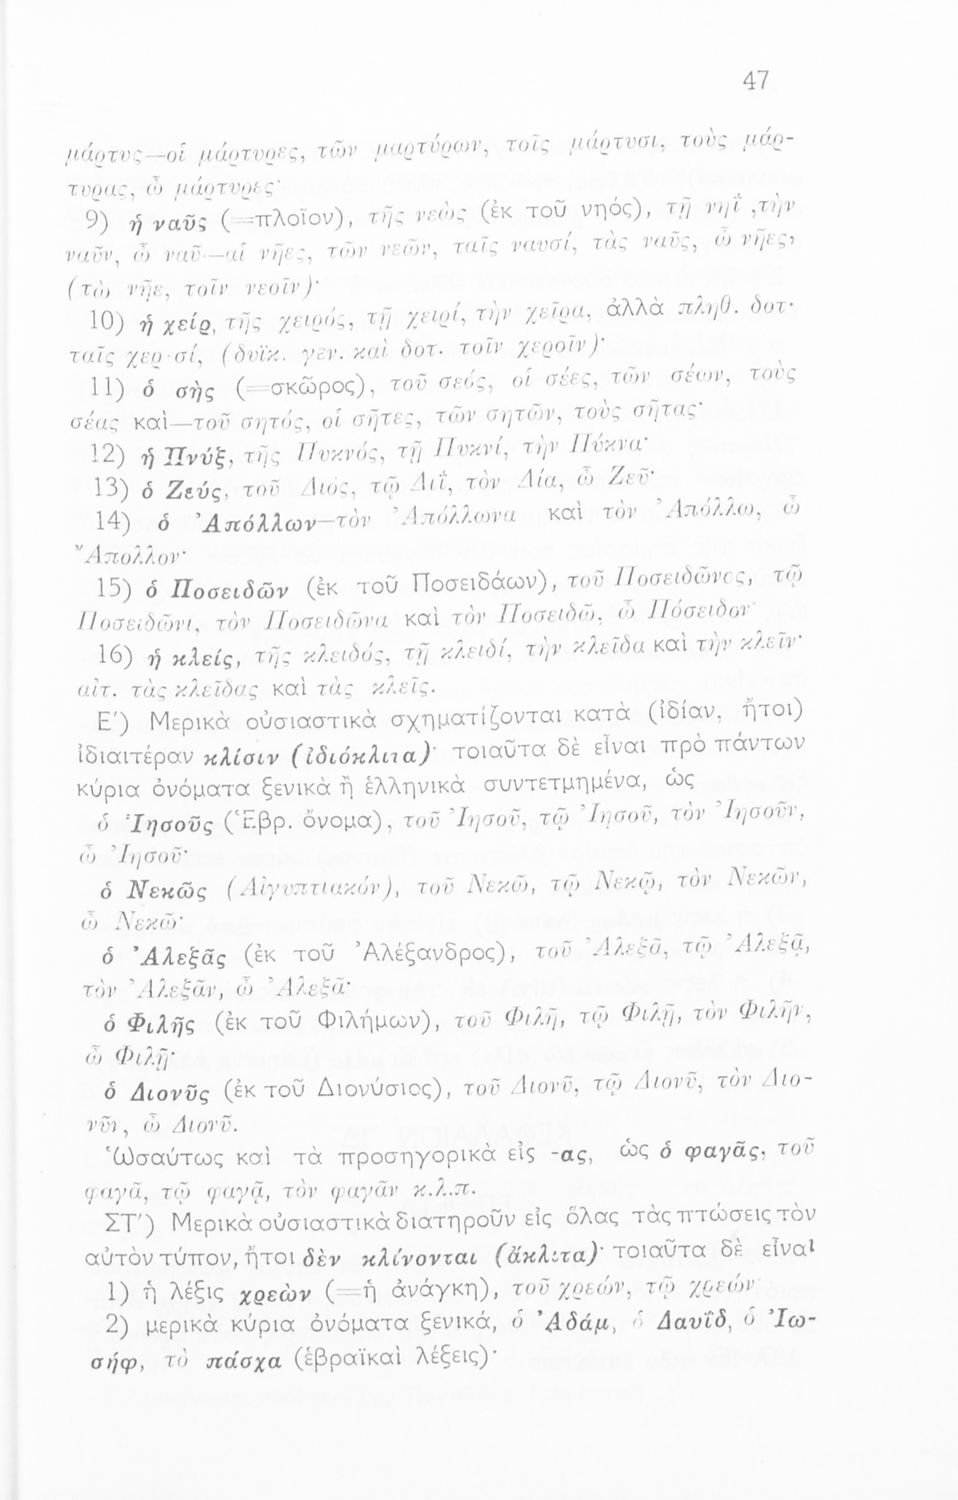 47
μάρτυς—οἱ μάρτυρες, τῶν μαρτύρων, τοῖς μάρτυσι, τοὺς μάρ-
τυρας, ὦ μάρτυρες·
9) ἡ ναῦς (=πλοῖον), τῆς νεὼς (ἐκ τοῦ νηός), τῇ νηῒ ,τὴν
ναῦν, ὦ ναῦ—αἱ νῆες, τῶν νεῶν, ταῖς ναυσί, τὰς ναῦς, ὦ νῆες,
(τὼ νῆε, τοῖν νεοῖν)·
10) ἡ χείρ, τῆς χειρός, τῇ χειρί, τὴν χεῖρα, ἀλλὰ πληθ. δοτ·
ταῖς χερ σί, (δυϊκ. γεν. καὶ δοτ. τοῖν χεροῖν)·
11) ὁ σὴς (=σκῶρος), τοῦ σεός, οἱ σέες, τῶν σέων, τοὺς
σέας καὶ—τοῦ σητός, οἱ σῆτες, τῶν σητῶν, τοὺς σῆτας·
12) ἡ Πνύξ, τῆς Πυκνός, τῇ Πυκνί, τὴν Πύκνα·
13) ὁ Ζεύς, τοῦ Διός, τῷ Διΐ, τὸν Δία, ὦ Ζεῦ·
14) ὁ Ἀπόλλων—τὸν Ἀπόλλωνα καὶ τὸν Ἀπόλλω, ὦ
Ἄπολλον·
15) ὁ Ποσειδῶν (ἐκ τοῦ Ποσειδάων), τοῦ Ποσειδῶνος, τῷ
Ποσειδῶνι, τὸν Ποσειδῶνα καὶ τὸν Ποσειδῶ, ὦ Πόσειδον·
16) ἡ κλείς, τῆς κλειδός, τῇ κλειδί, τὴν κλεῖδα καὶ τὴν κλεῖν·
αἰτ. τὰς κλεῖδας καὶ τὰς κλεῖς.
Ε') Μερικὰ οὐσιαστικὰ σχηματίζονται κατὰ (ἰδίαν, ἤτοι)
ἰδιαιτέραν κλίσιν (ἰδιόκλιτα)· τοιαῦτα δὲ εἶναι πρὸ πάντων
κύρια ὀνόματα ξενικὰ ἢ ἑλληνικὰ συντετμημένα, ὡς
ὁ Ἰησοῦς (Ἑβρ. ὄνομα), τοῦ Ἰησοῦ, τῷ Ἰησοῦ, τὸν Ἰησοῦν,
ὦ Ἰησοῦ·
ὁ Νεκῶς (Αἰγυπτιακόν), τοῦ Νεκῶ, τῷ Νεκῷ, τὸν Νεκῶν,
ὦ Νεκῶ·
ὁ Ἀλεξᾶς (ἐκ τοῦ Ἀλέξανδρος), τοῦ Ἀλεξᾶ, τῷ Ἀλεξᾷ,
τὸν Ἀλεξᾶν, ὦ Ἀλεξᾶ·
ὁ Φιλῆς (ἐκ τοῦ Φιλήμων), τοῦ Φιλῆ, τῷ Φιλῇ, τὸν Φιλῆν,
ὦ Φιλῆ·
ὁ Διονῦς (ἐκ τοῦ Διονύσιος), τοῦ Διονῦ, τῷ Διονῦ, τὸν Διο-
νῦν, ὦ Διονῦ.
Ὡσαύτως καὶ τὰ προσηγορικὰ εἰς -ας, ὡς ὁ φαγᾶς, τοῦ
φαγᾶ, τῷ φαγᾷ, τὸν φαγᾶν κ.λ.π.
ΣΤ') Μερικὰ οὐσιαστικὰ διατηροῦν εἰς ὅλας τὰς πτώσεις τὸν
αὐτὸν τύπον, ἤτοι δὲν κλίνονται (ἄκλιτα)· τοιαῦτα δὲ εἶναι
1) ἡ λέξις χρεὼν (=ἡ ἀνάγκη), τοῦ χρεών, τῷ χρεών·
2) μερικὰ κύρια ὀνόματα ξενικά, ὁ Ἀδάμ, ὁ Δαυῒδ, ὁ Ἰω-
σήφ, τὸ πάσχα (ἑβραϊκαὶ λέξεις)·